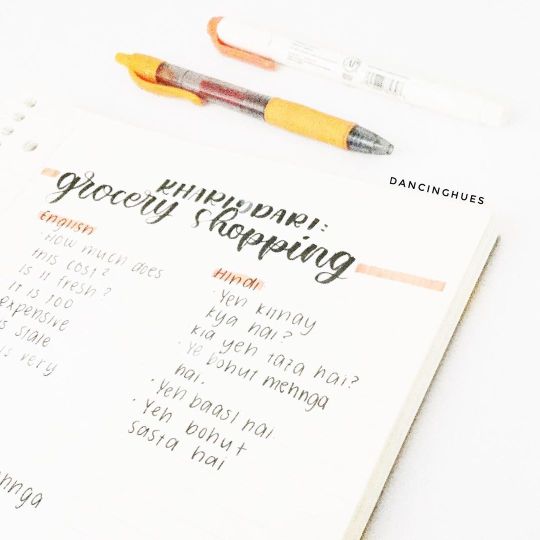 DANCINGHUES
KHARIDDARI:
grocery shopping
English
· How much does
this cost?
is it fresh?
it is too
expensive
is stale
is very
Hindi
· Yeh kitnay
kya hai?
kia yeh taza hai?
· Ye bohut mehnga
hai.
· Yeh baasi hai
· Yeh bohut
sasta hai